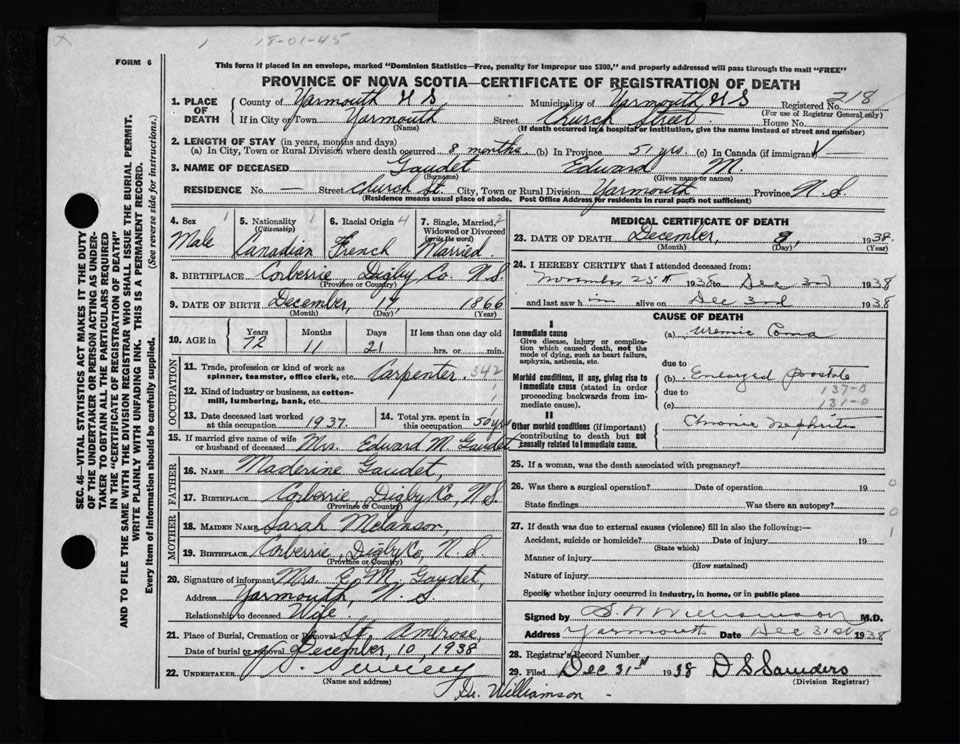 18-01-45
FORM 6
This form if placed in an envelope, marked "Dominion Statistics—Free, penalty for improper use $300," and properly addressed will pass through the mail "FREE"
PROVINCE OF NOVA SCOTIA—CERTIFICATE OF REGISTRATION OF DEATH
1. PLACE OF DEATH County of Yarmouth N S Municipality of Yarmouth, N S Registered No. 218
(For use of Registrar General only)
If in City or Town Yarmouth Street Church Street House No.
(Name) (If death occurred in a hospital or institution, give the name instead of street and number)
2. LENGTH OF STAY (in years, months and days)
(a) In City, Town or Rural Division where death occurred 8 months. (b) In Province 51 yrs. (c) In Canada (if immigrant)
3. NAME OF DECEASED Gaudet Edward M.
(Surname) (Given name or names)
RESIDENCE No. — Street Church St. City, Town or Rural Division Yarmouth Province N. S.
(Residence means usual place of abode. Post Office Address for residents in rural parts not sufficient)
SEC. 46—VITAL STATISTICS ACT MAKES IT THE DUTY
OF THE UNDERTAKER OR PERSON ACTING AS UNDER-
TAKER TO OBTAIN ALL THE PARTICULARS REQUIRED
IN THE "CERTIFICATE OF REGISTRATION OF DEATH"
AND TO FILE THE SAME WITH THE DIVISION REGISTRAR WHO SHALL ISSUE THE BURIAL PERMIT.
WRITE PLAINLY WITH UNFADING INK. THIS IS A PERMANENT RECORD.
Every item of information should be carefully supplied. (See reverse side for instructions.)
4. Sex 1 5. Nationality 1 6. Racial Origin 4 7. Single, Married, 2
(Citizenship) Widowed or Divorced
(write the word)
Male Canadian French Married
8. BIRTHPLACE Corberrie, Digby Co. N.S.
(Province or Country)
9. DATE OF BIRTH December, 17, 1866
(Month) (Day) (Year)
10. AGE in Years Months Days If less than one day old
72 11 21 hrs. or min.
OCCUPATION
11. Trade, profession or kind of work as
spinner, teamster, office clerk, etc. Carpenter. 342
12. Kind of industry or business, as cotton-
mill, lumbering, bank, etc.
13. Date deceased last worked
at this occupation 1937.
14. Total yrs. spent in
this occupation 50 yrs
15. If married give name of wife
or husband of deceased Mrs. Edward M. Gaudet
FATHER
16. NAME Maderine Gaudet,
17. BIRTHPLACE Corberrie, Digby Co, N.S.
(Province or Country)
MOTHER
18. MAIDEN NAME Sarah Melanson.
19. BIRTHPLACE Corberrie, Digby Co, N. S.
(Province or Country)
20. Signature of informant Mrs. E. M. Gaudet,
Address Yarmouth, N. S
Relationship to deceased Wife.
21. Place of Burial, Cremation or Removal St. Ambrose,
Date of burial or removal December, 10, 1938
22. UNDERTAKER
(Name and address)
Dr. Williamson -
MEDICAL CERTIFICATE OF DEATH
23. DATE OF DEATH December, 8, 1938.
(Month) (Day) (Year)
24. I HEREBY CERTIFY that I attended deceased from:
November 25th 1938 to Dec 3rd 1938
and last saw him alive on Dec 3rd 1938
CAUSE OF DEATH
I
Immediate cause
Give disease, injury or compli-
cation which caused death, not the
mode of dying, such as heart failure,
asphyxia, asthenia, etc.
(a) Uremic Coma
due to
Morbid conditions, if any, giving rise to
immediate cause (stated in order
proceeding backwards from im-
mediate cause).
(b) Enlarged prostate
due to 137-0
(c) 131-0
II
Other morbid conditions (if important)
contributing to death but not
causally related to immediate cause.
Chronic Nephritis
25. If a woman, was the death associated with pregnancy?
26. Was there a surgical operation? Date of operation 19 0
State findings Was there an autopsy? 0
27. If death was due to external causes (violence) fill in also the following:—
Accident, suicide or homicide? Date of injury 19
(State which)
Manner of injury
(How sustained)
Nature of injury
Specify whether injury occurred in industry, in home, or in public place
Signed by S. W Williamson M.D.
Address Yarmouth Date Dec 31st 1938
28. Registrar's Record Number
29. Filed Dec 31st 1938 D S Saunders
(Division Registrar)